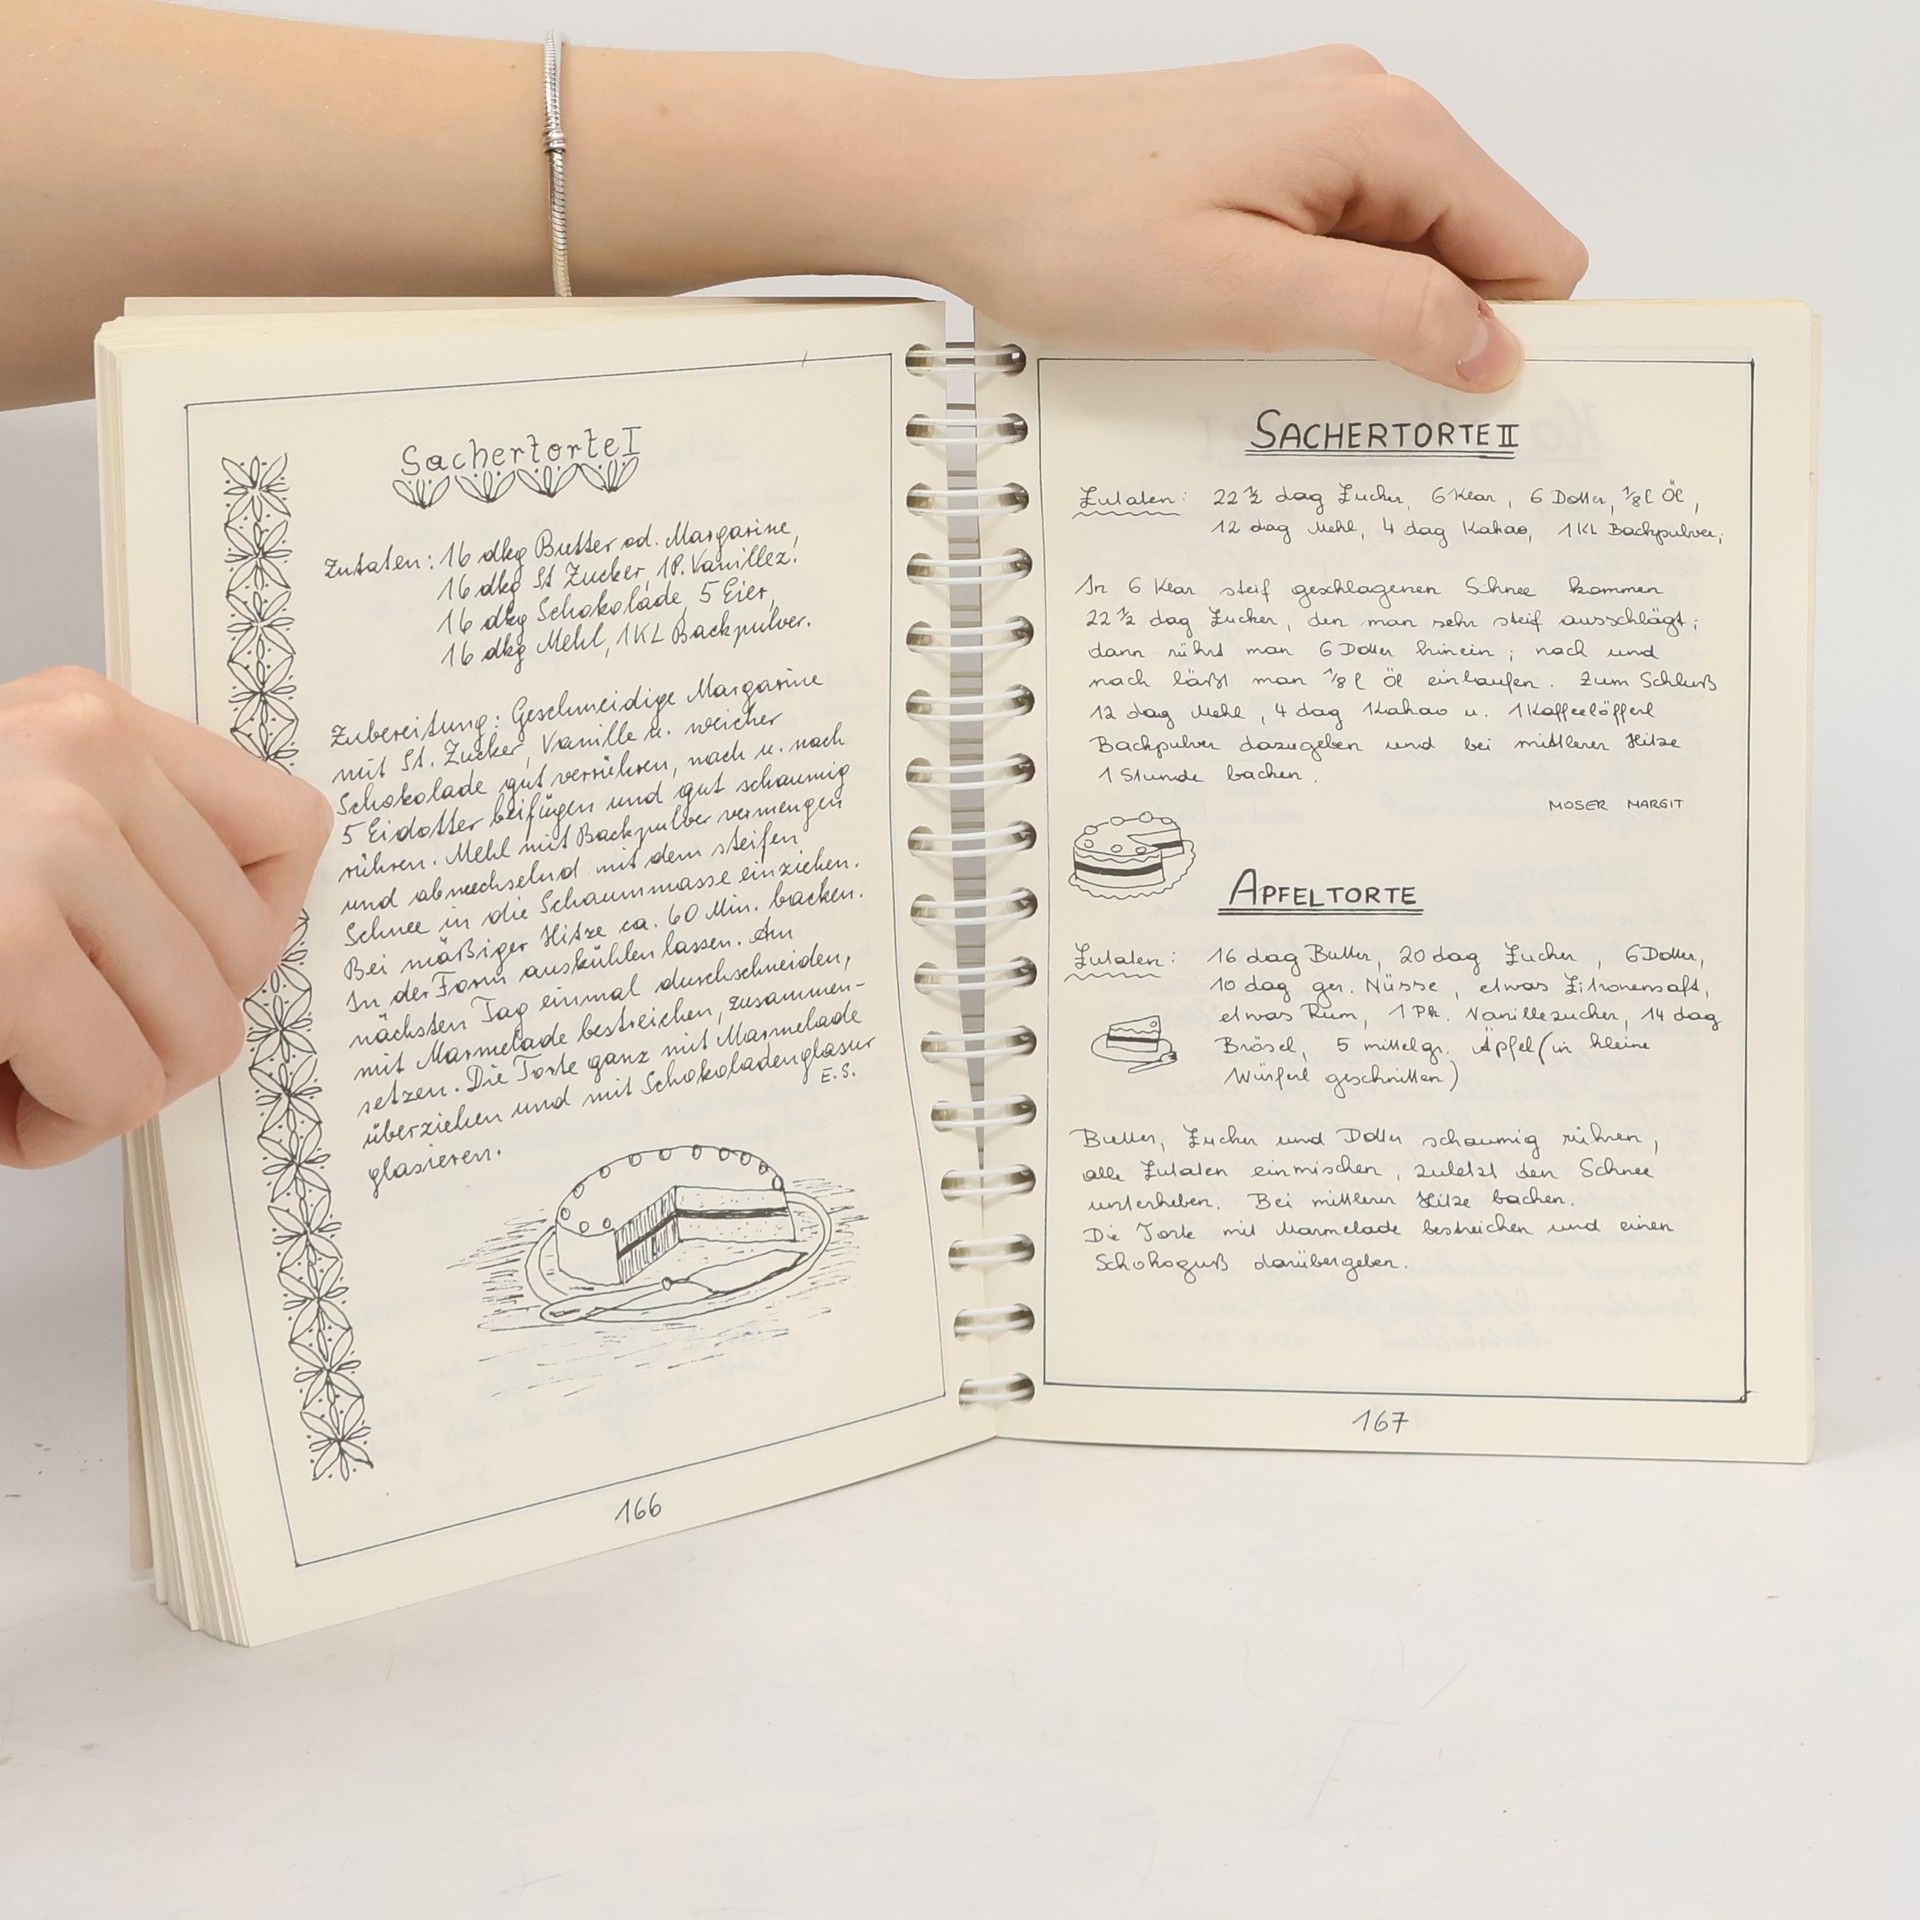 Sachertorte I
Zutaten: 16 dkg Butter od. Margarine,
16 dkg St Zucker, 1P. Vanillez.
16 dkg Schokolade, 5 Eier,
16 dkg Mehl, 1KL Backpulver.
Zubereitung: Geschmeidige Margarine
mit St. Zucker, Vanille u. weicher
Schokolade gut verrühren, nach u. nach
5 Eidotter beifügen und gut schaumig
rühren. Mehl mit Backpulver vermengen
und abwechselnd mit dem steifen
Schnee in die Schaummasse einziehen.
Bei mäßiger Hitze ca. 60 Min. backen.
In der Form auskühlen lassen. Am
nächsten Tag einmal durchschneiden,
mit Marmelade bestreichen, zusammen-
setzen. Die Torte ganz mit Marmelade
überziehen und mit Schokoladenglasur
glasieren.
E.S.
166
SACHERTORTE II
Zutaten: 22 ½ dag Zucker, 6 Klar, 6 Dotter, ⅛ l Öl,
12 dag Mehl, 4 dag Kakao, 1 KL Backpulver,
In 6 Klar steif geschlagenen Schnee kommen
22 ½ dag Zucker, den man sehr steif ausschlägt;
dann rührt man 6 Dotter hinein; nach und
nach läßt man ⅛ l Öl einlaufen. Zum Schluß
12 dag Mehl, 4 dag Kakao u. 1 Kaffeelöfferl
Backpulver dazugeben und bei mittlerer Hitze
1 Stunde backen.
MOSER MARGIT
APFELTORTE
Zutaten: 16 dag Butter, 20 dag Zucker, 6 Dotter,
10 dag ger. Nüsse, etwas Zitronensaft,
etwas Rum, 1 Pk. Vanillezucker, 14 dag
Brösel, 5 mittelgr. Äpfel (in kleine
Würferl geschnitten)
Butter, Zucker und Dotter schaumig rühren,
alle Zutaten einmischen, zuletzt den Schnee
unterheben. Bei mittlerer Hitze backen.
Die Torte mit Marmelade bestreichen und einen
Schokoguß darübergeben.
167